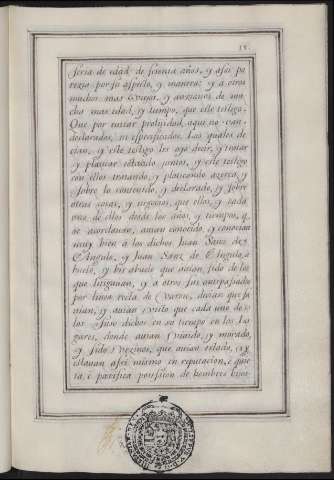 15.
seria de edad de setenta años, y assi pa
rezia por su aspecto, y manera; y a otros
muchos mas viejos, y anzianos de mu
cha mas edad, y tiempo, que este testigo.
Que por euitar prolixidad aqui no van
declarados, ni espezificados. Los quales de
zian, y este testigo les oyo dezir, y tratar
y platicar estando juntos, y este testigo
con ellos tratando, y platicando azerca, y
sobre lo contenido, y declarado, y sobre
otras cosas, y negocios, que ellos, y cada
vno de ellos desde los años, y tiempos, q.
se acordauan, auian conozido, y conozian
muy bien á los dichos Juan Sanz de
Angulo, y Juan Sanz de Angulo, a
buelo, y bis abuelo que auian sido de los
que litigauan, y a otros sus antepasados
por linea recta de Varon, dezian que sa
uian, y auian visto que cada vno de
los suso dichos en su tiempo en los lu
gares, donde auian viuido, y morado,
y sido vezinos, que auian estado, y
estauan assi mismo en reputacion, é quie
ta, é pacifica possesion de hombres hijos